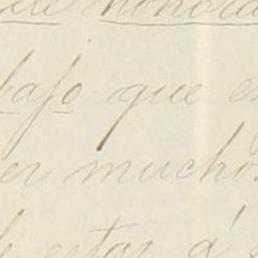 de honora
bajo que e
er mucho
de estar á